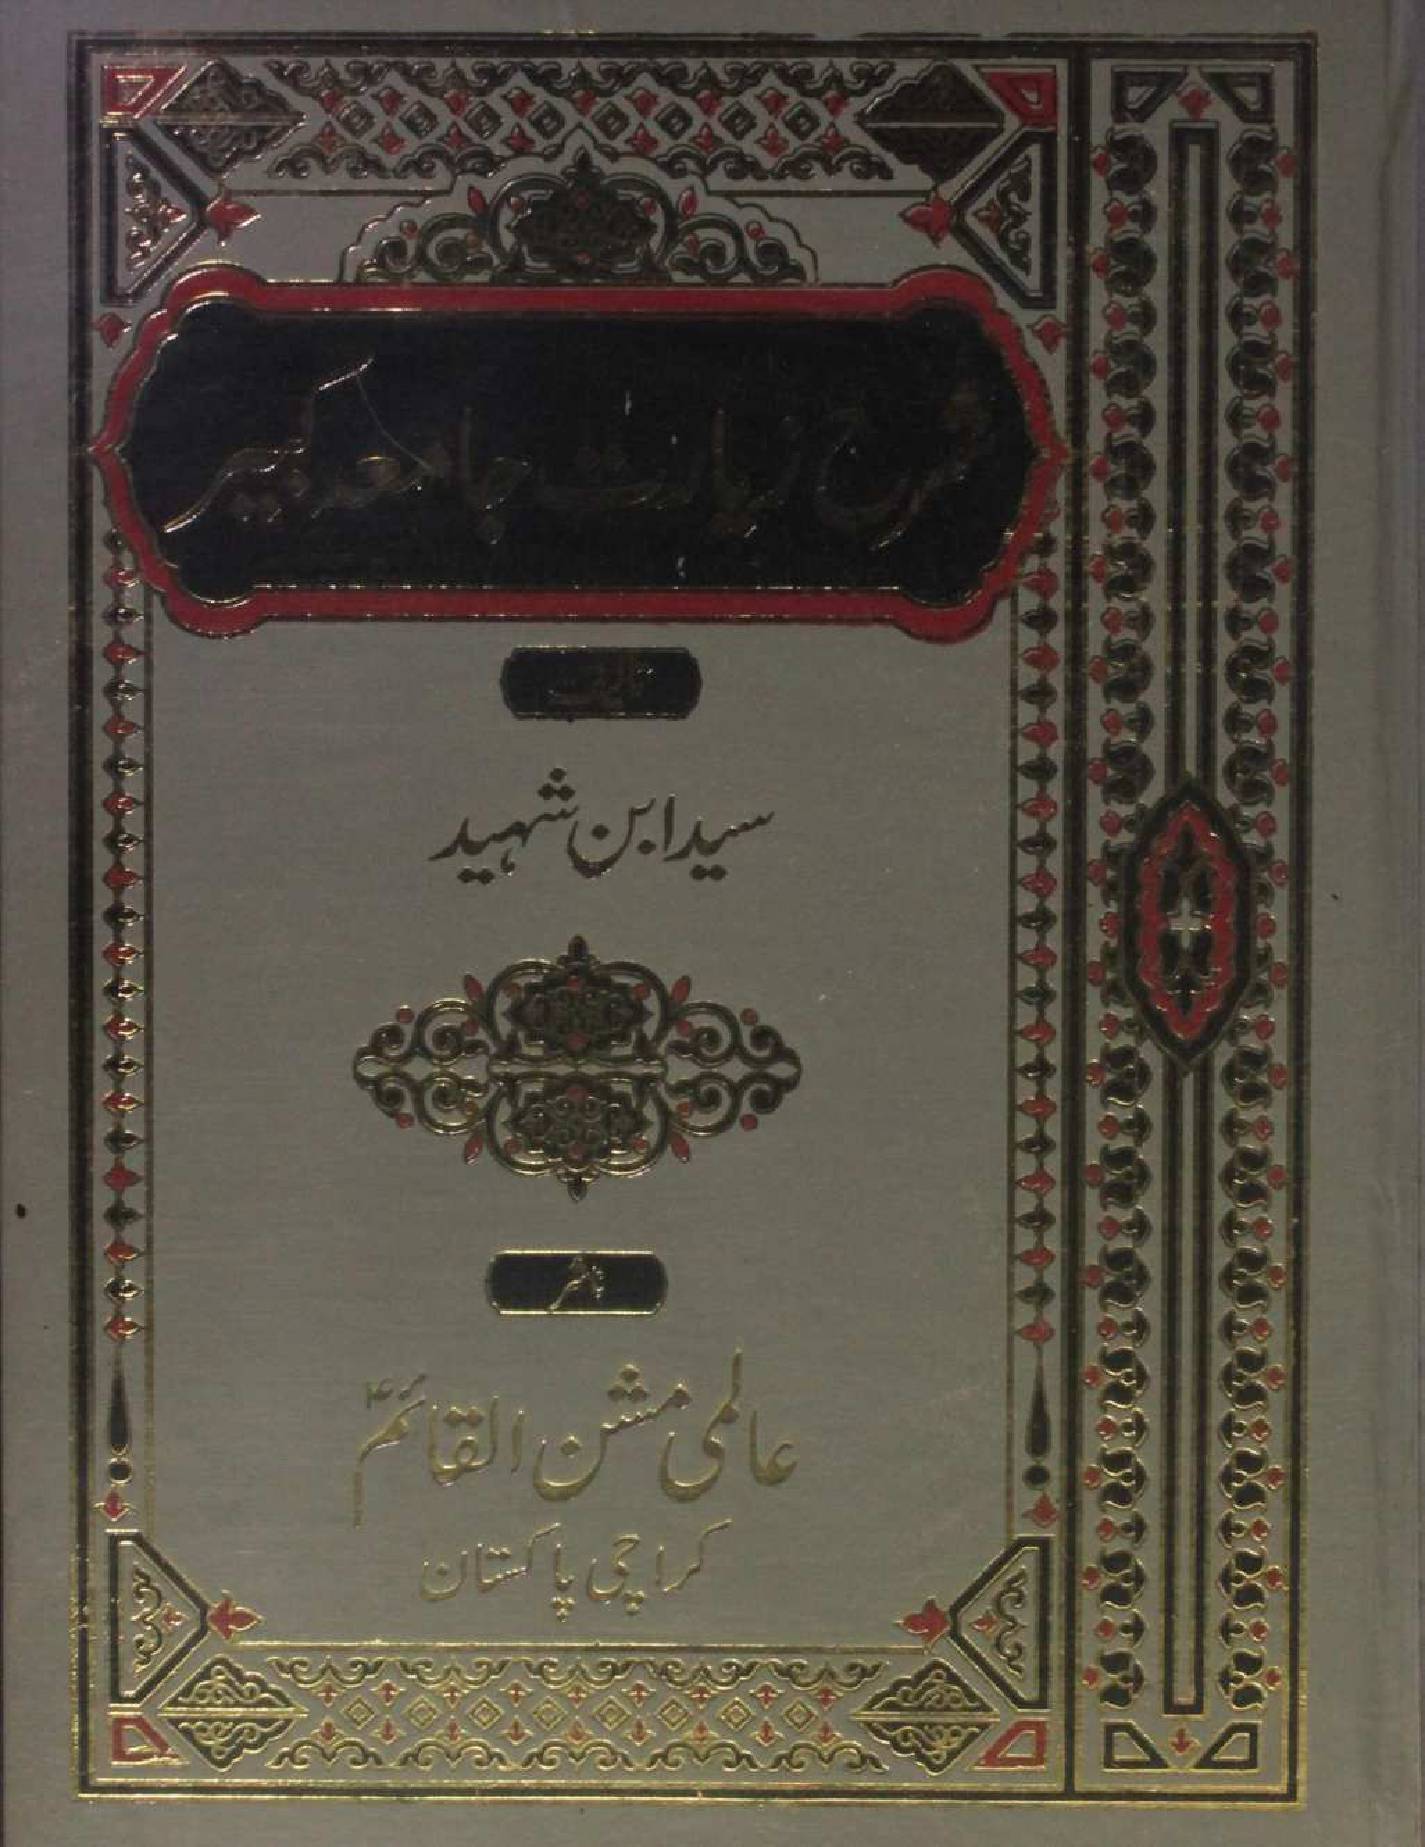 شرح زیارت جامعہ کبیر
تالیف
سید ابن شہید
ناشر
عالمی مشن القائمؑ
کراچی پاکستان